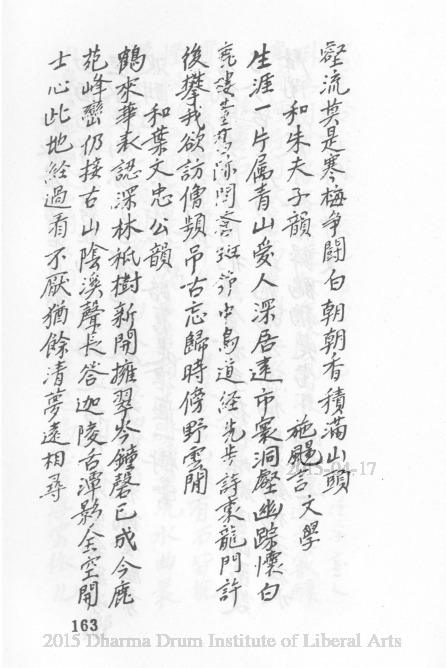 壑流莫是寒梅爭鬪白朝朝香積滿山頭
和朱夫子韻
施賜言文學
生涯一片属青山愛人深居遠市寰洞壑幽踪懷白
苔斑竹中鳥道經先步詩東龍門許
後攀我欲訪僧頻吊古忘歸時傍野雲閒
和葉文忠公韻
鶴來華表認深林祗樹新開擁翠岑鐘磬已成今鹿
苑峰巒仍接古山陰溪聲長答迦陵舌潭影全空開
士心此地經過看不厭猶餘清夢遠相尋
163
2015-04-17
2015 Dharma Drum Institute of Liberal Arts